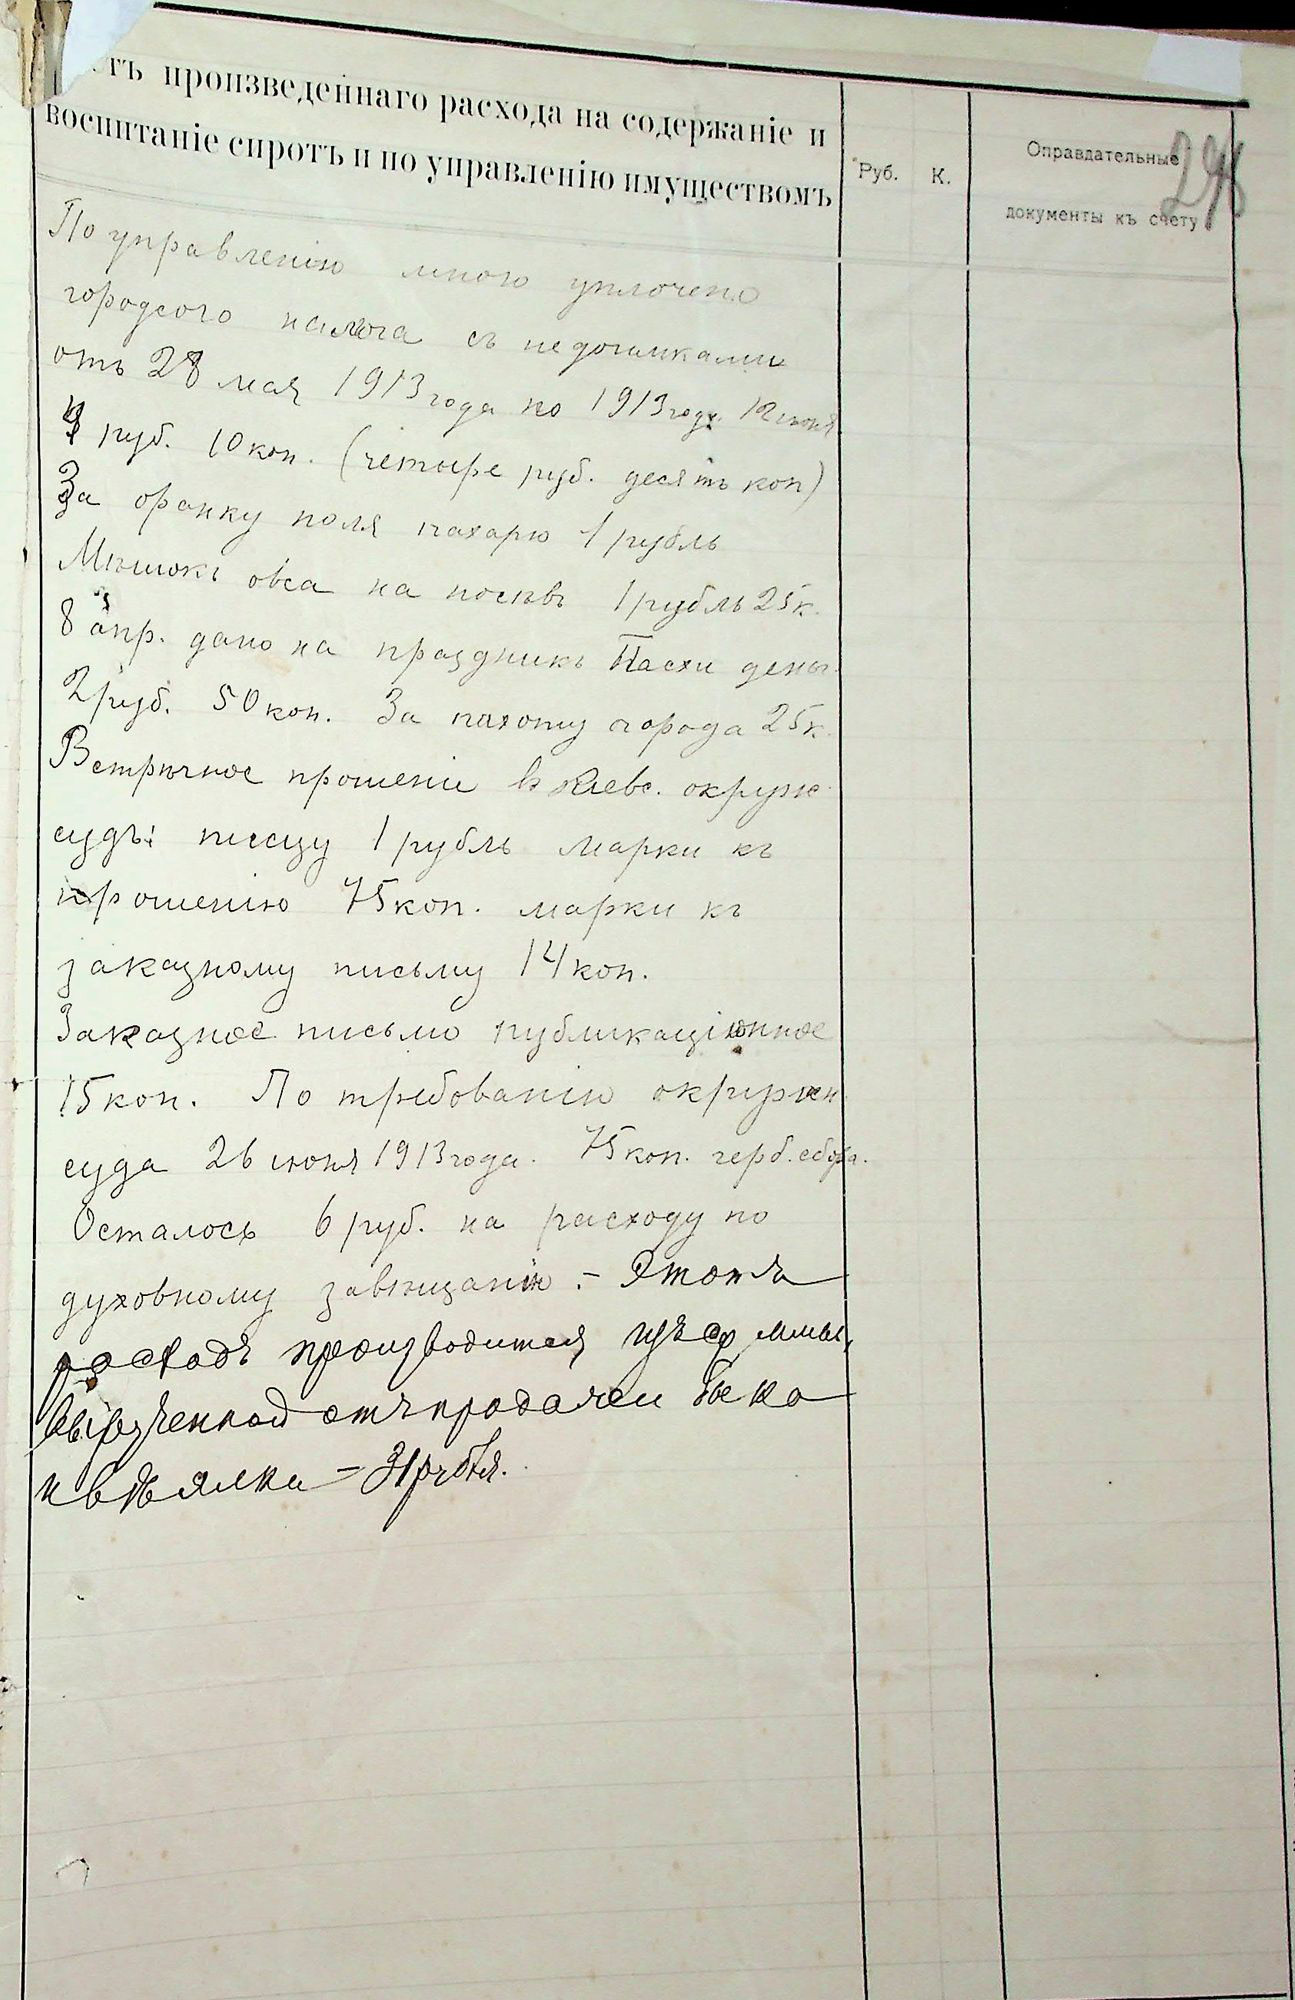 тъ произведеннаго расхода на содержаніе и
воспитаніе сиротъ и по управленію имуществомъ
Руб.
К.
Оправдательные
документы къ счету
По управленію мною уплочено
городсого налога съ недоимками
отъ 28 мая 1913 года по 1913 году 12 іюня
4 руб. 10 коп. (четыре руб. десять коп)
За оранку поля пахарю 1 рубль
Мѣшокъ овса на посѣвъ 1 рубль 25 к.
8 апр. дано на праздникъ Пасхи деньг.
2 руб. 50 коп. За пахоту города 25 к.
Встрѣчное прошеніе въ Кіевс. окруж
судъ: писцу 1 рубль марки къ
прошенію 75 коп. марки къ
заказному письму 14 коп.
Заказное письмо публикаціонное
15 коп. По требованію окружн
суда 26 июня 1913 года. 75 коп. герб. сбора.
Осталось 6 руб. на расходу по
духовному завѣщанію. – Этотъ
расходъ производится изъ суммы,
вырученной отъ продажи быка
и вѣялки – 31 рубля.